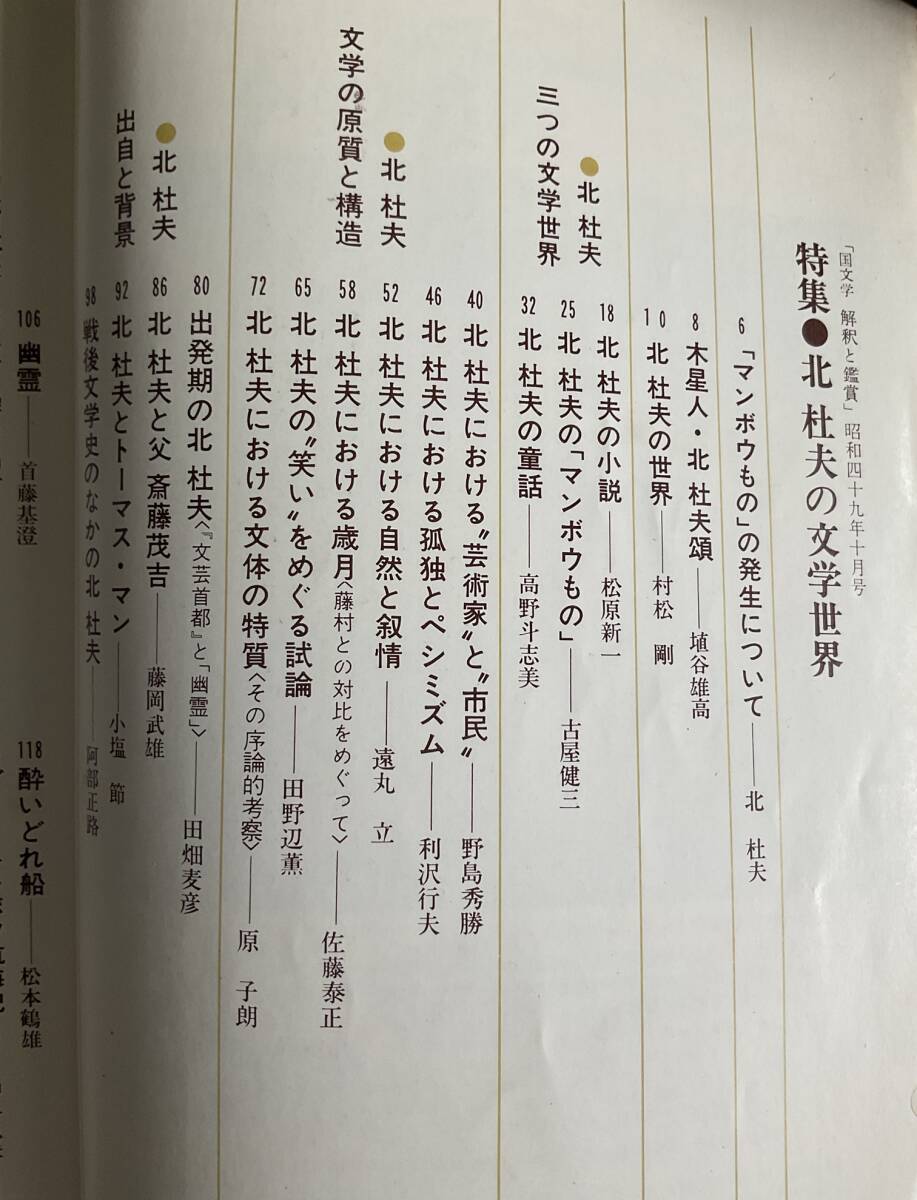 「国文学 解釈と鑑賞」 昭和四十九年十月号
特集●北 杜夫の文学世界
6 「マンボウもの」の発生について——北 杜夫
8 木星人・北 杜夫頌——埴谷雄高
10 北 杜夫の世界——村松 剛
●北 杜夫
三つの文学世界
18 北 杜夫の小説——松原新一
25 北 杜夫の「マンボウもの」——古屋健三
32 北 杜夫の童話——高野斗志美
●北 杜夫
文学の原質と構造
40 北 杜夫における〝芸術家〟と〝市民〟——野島秀勝
46 北 杜夫における孤独とペシミズム——利沢行夫
52 北 杜夫における自然と叙情——遠丸 立
58 北 杜夫における歳月〈藤村との対比をめぐって〉——佐藤泰正
65 北 杜夫の〝笑い〟をめぐる試論——田野辺薫
72 北 杜夫における文体の特質〈その序論的考察〉——原 子朗
●北 杜夫
出自と背景
80 出発期の北 杜夫〈『文芸首都』と「幽霊」〉——田畑麦彦
86 北 杜夫と父 斎藤茂吉——藤岡武雄
92 北 杜夫とトーマス・マン——小塩 節
98 戦後文学史のなかの北 杜夫——阿部正路
106 幽霊——首藤基澄
118 酔いどれ船——松本鶴雄